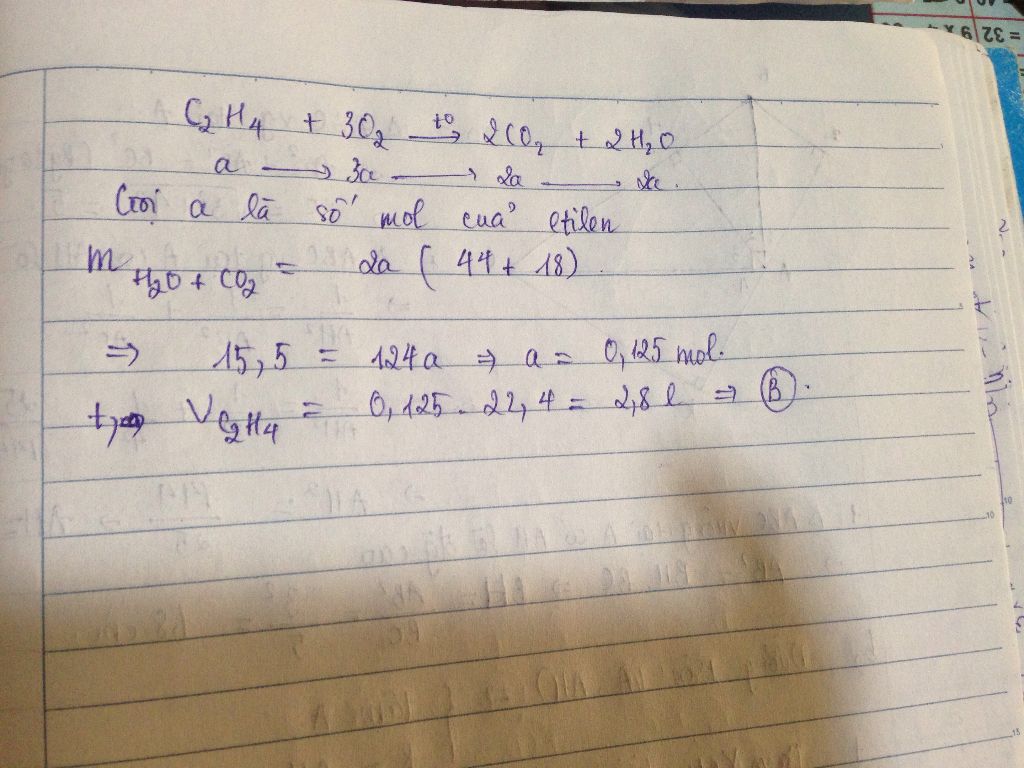 C₂H₄ + 3O₂ —t°→ 2CO₂ + 2H₂O
a → 3a → 2a → 2a.
Gọi a là số mol của etilen
m H₂O + CO₂ = 2a ( 44 + 18)
⇒ 15,5 = 124a ⇒ a = 0,125 mol.
V C₂H₄ = 0,125 . 22,4 = 2,8 l ⇒ B.